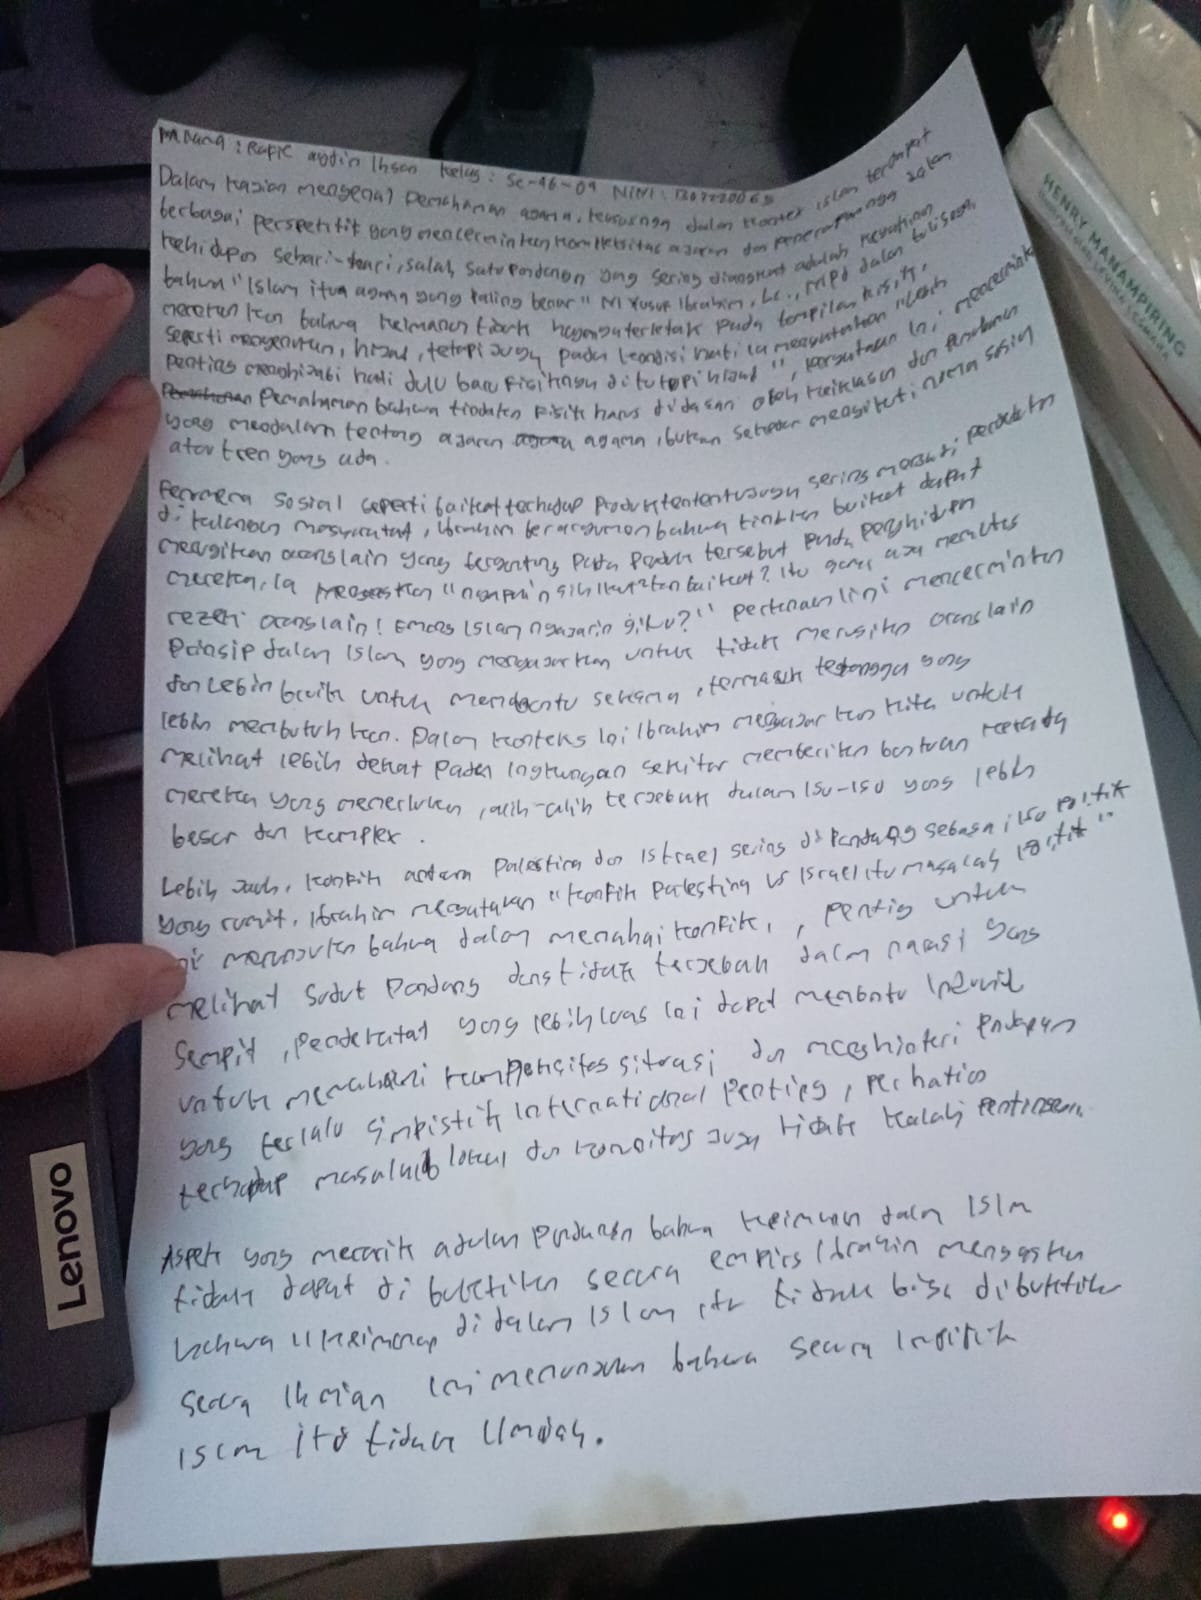 Nama : Rafic Ihsan Kelas : SE-46-04 NIM :
Dalam kajian mengenai pemahaman agama, khususnya dalam konteks Islam terdapat
berbagai perspektif yang mencerminkan kompleksitas ajaran dan penerapannya dalam
kehidupan sehari-hari, salah satu pandangan yang sering diangkat adalah
bahwa "Islam itu agama yang paling benar" M Yusuf Ibrahim, Lc., MPd dalam tulisannya,
menekankan bahwa keimanan tidak hanya terletak pada tampilan fisik,
seperti mengenakan, hijab, tetapi juga pada kondisi hati ia mengatakan lebih
penting menghijabi hati dulu baru fisiknya ditutupi hijab", pernyataan ini mencerminkan
pemahaman bahwa tindakan fisik harus didasari oleh keikhlasan dan
yang mendalam tentang ajaran agama, bukan sekedar mengikuti norma sosial
atau tren yang ada.
Fenomena sosial seperti boikot terhadap produk tertentu juga sering
di kalangan masyarakat, Ibrahim berargumen bahwa tindakan boikot dapat
merugikan orang lain yang bergantung pada produk tersebut pada
mereka, ia "ngapain sih ikut²tan boikot? itu memutus
rezeki orang lain! Emang Islam ngajarin gitu?" ini mencerminkan
prinsip dalam Islam yang mengajarkan untuk tidak merugikan orang lain
dan lebih baik untuk membantu sesama, termasuk tetangga yang
lebih membutuhkan. Dalam konteks ini Ibrahim mengajarkan kita untuk
melihat lebih dekat pada lingkungan sekitar memberikan bantuan kepada
mereka yang memerlukan, alih-alih terjebak dalam isu-isu yang lebih
besar dan komplex.
Lebih jauh, konflik antara Palestina dan Israel sering di pandang sebagai isu politik
yang rumit, Ibrahim mengatakan "konflik Palestina vs Israel itu masalah politik"
ini menunjukkan bahwa dalam konflik, penting untuk
melihat sudut pandang dan tidak terjebak dalam narasi yang
sempit, pendekatan yang lebih luas ini dapat membantu individu
untuk memahami kompleksitas situasi dan menghindari
yang terlalu simpistik international penting, perhatian
terhadap masalah lokal dan juga tidak kalah pentingnya.
Aspek yang menarik adalah pandangan bahwa keimanan dalam Islam
tidak dapat di buktikan secara empiris Ibrahim
bahwa "keimanan di dalam Islam itu tidak bisa dibuktikan
secara ilmiah ini menunjukan bahwa secara
Islam itu tidak ilmiah.
Lenovo
HENRY MANAMPIRING